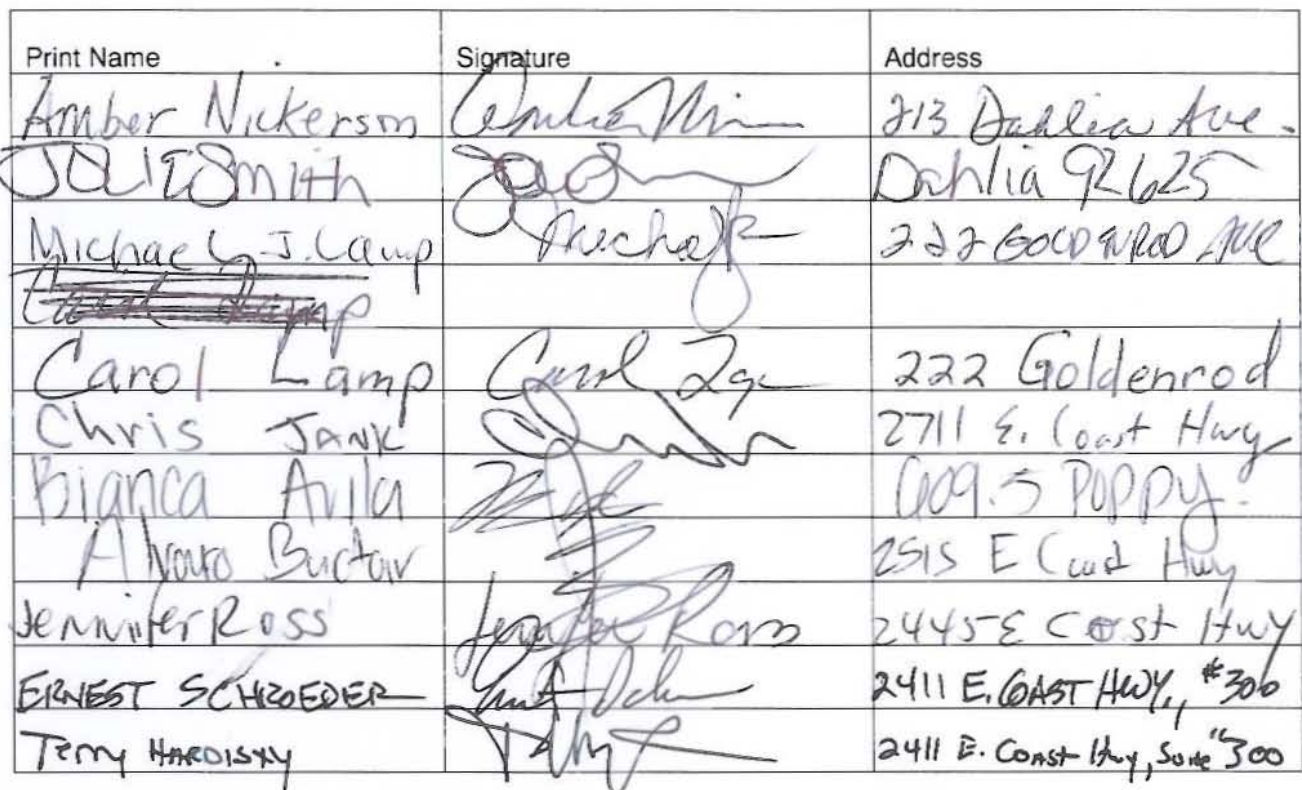 Print Name Signature Address
Amber Nickerson 213 Dahlia Ave.
JULIE Smith Dahlia 92625
Michael J. Lamp Michael 222 GOLDENROD AVE
Carol Lamp Carol 222 Goldenrod
Chris JANK 2711 E. Coast Hwy
Bianca Avila 609.5 POPPY
Alvaro 2515 E Coast Hwy
Jennifer Ross Jennifer Ross 2445 E Coast Hwy
ERNEST SCHROEDER 2411 E. COAST HWY., #300
Terry HARDISTY 2411 E. Coast Hwy, Suite "300